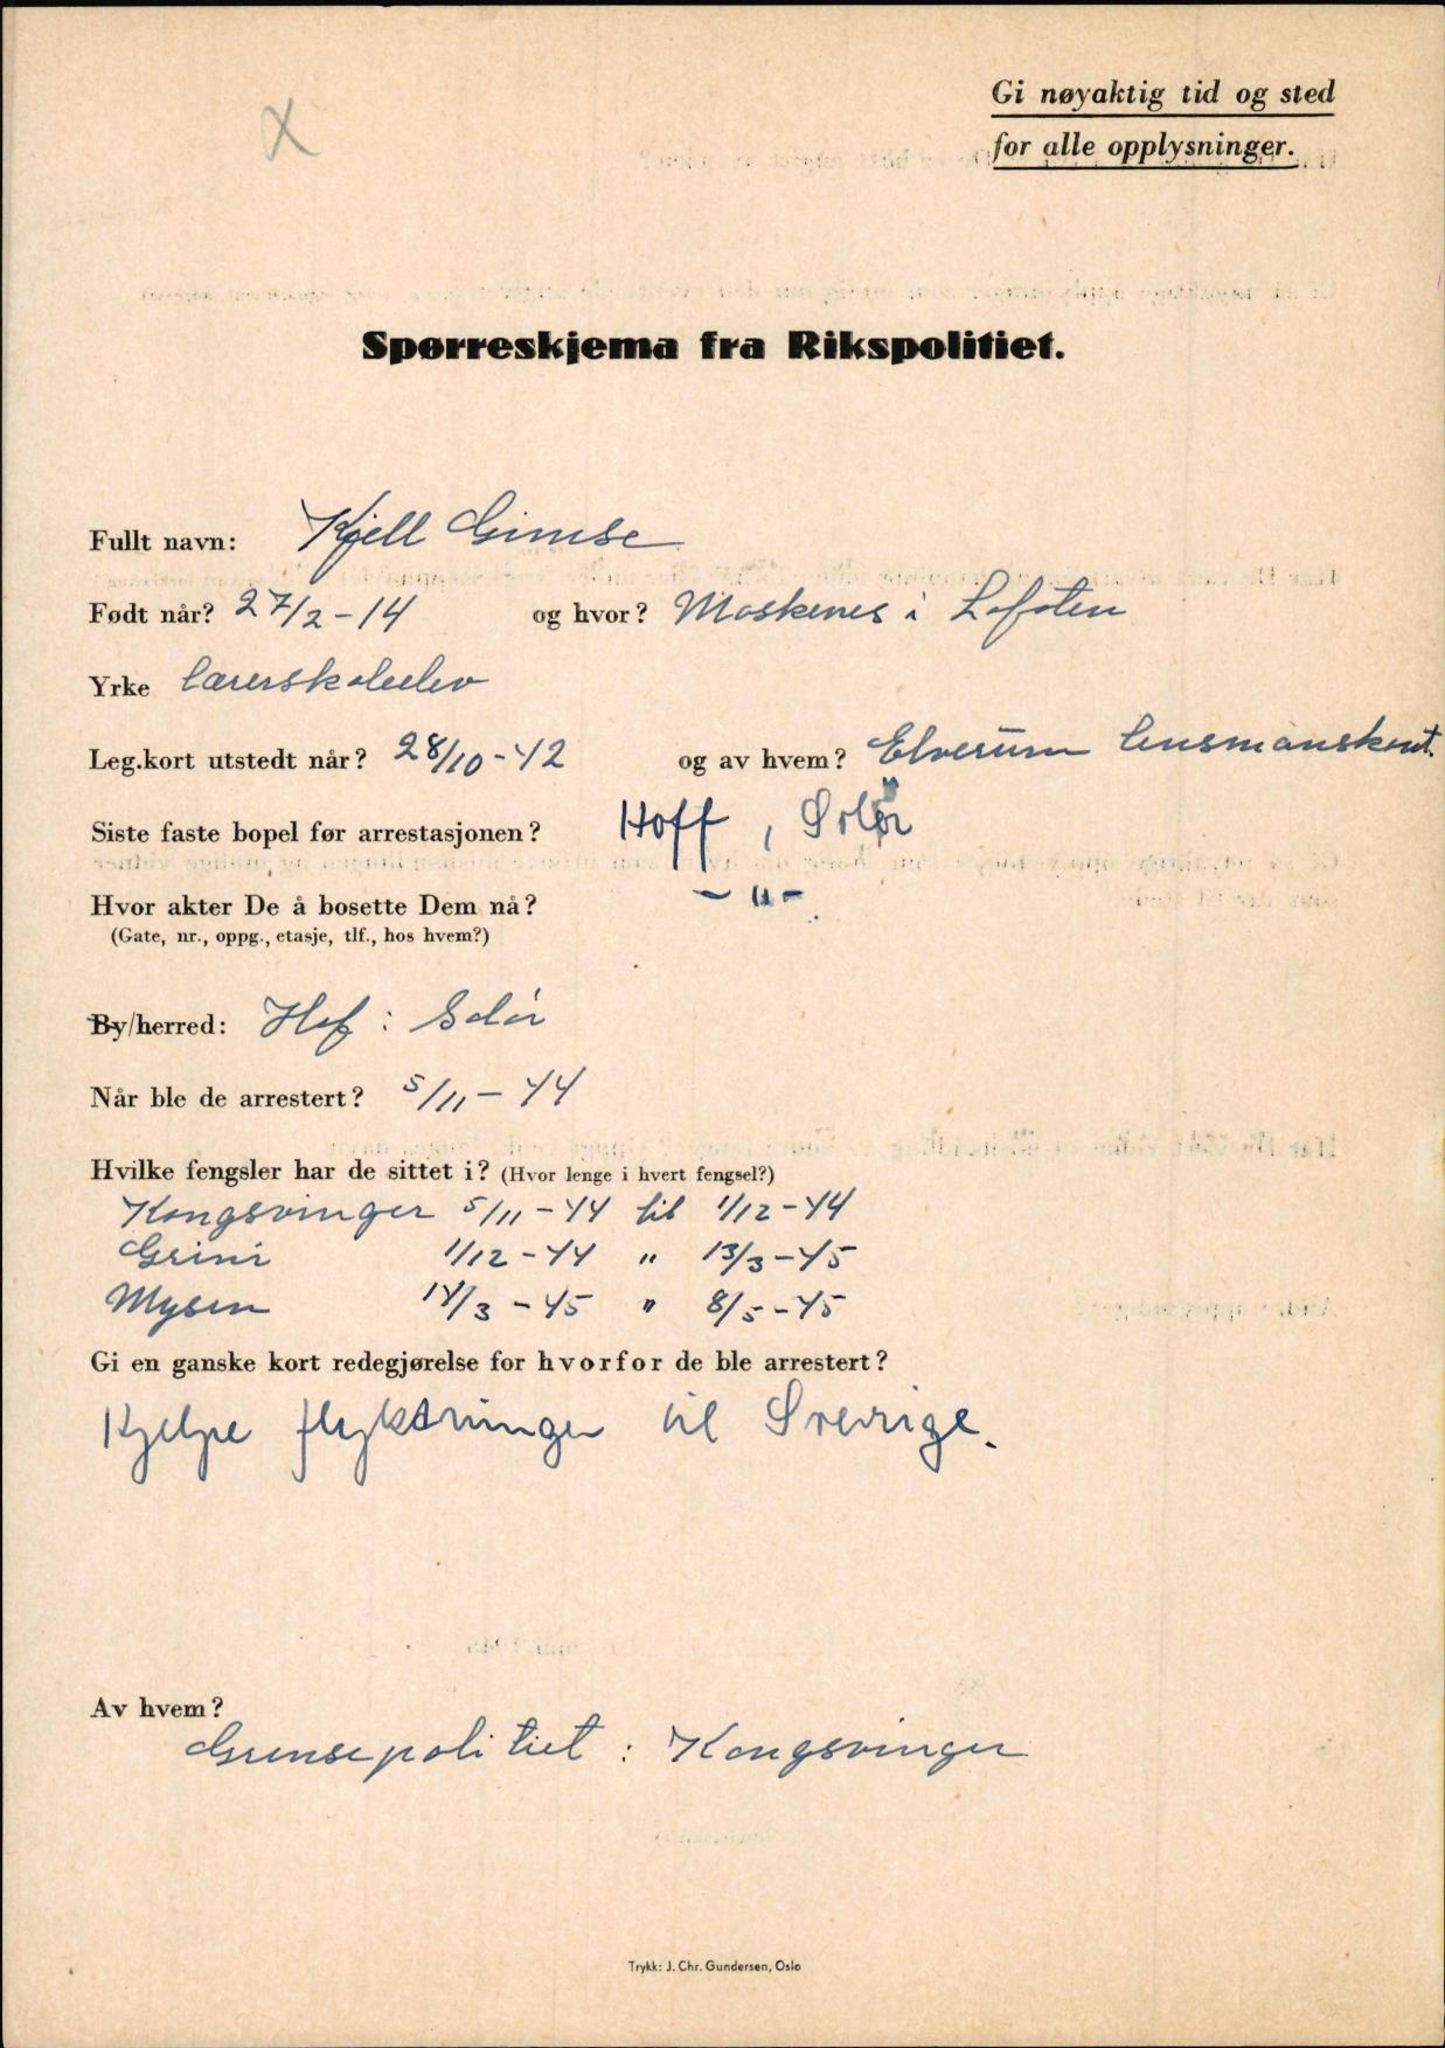 Gi nøyaktig tid og sted
for alle opplysninger.
X
Spørreskjema fra Rikspolitiet.
Fullt navn: Kjell Gimse
Født når? 27/2-14 og hvor? Moskenes i Lofoten
Yrke Lærerskoleelev
Leg.kort utstedt når? 28/10-42 og av hvem? Elverum lensmanskont.
Siste faste bopel før arrestasjonen? Hoff, Solør
Hvor akter De å bosette Dem nå? – " –
(Gate, nr., oppg., etasje, tlf., hos hvem?)
By/herred: Hof : Solør
Når ble de arrestert? 5/11-44
Hvilke fengsler har de sittet i? (Hvor lenge i hvert fengsel?)
Kongsvinger 5/11-44 til 1/12-44
Grini 1/12-44 " 13/3-45
Mysen 14/3-45 " 8/5-45
Gi en ganske kort redegjørelse for hvorfor de ble arrestert?
Hjelpe flyktninger til Sverige.
Av hvem?
Grensepolitiet : Kongsvinger
Trykk: J. Chr. Gundersen, Oslo